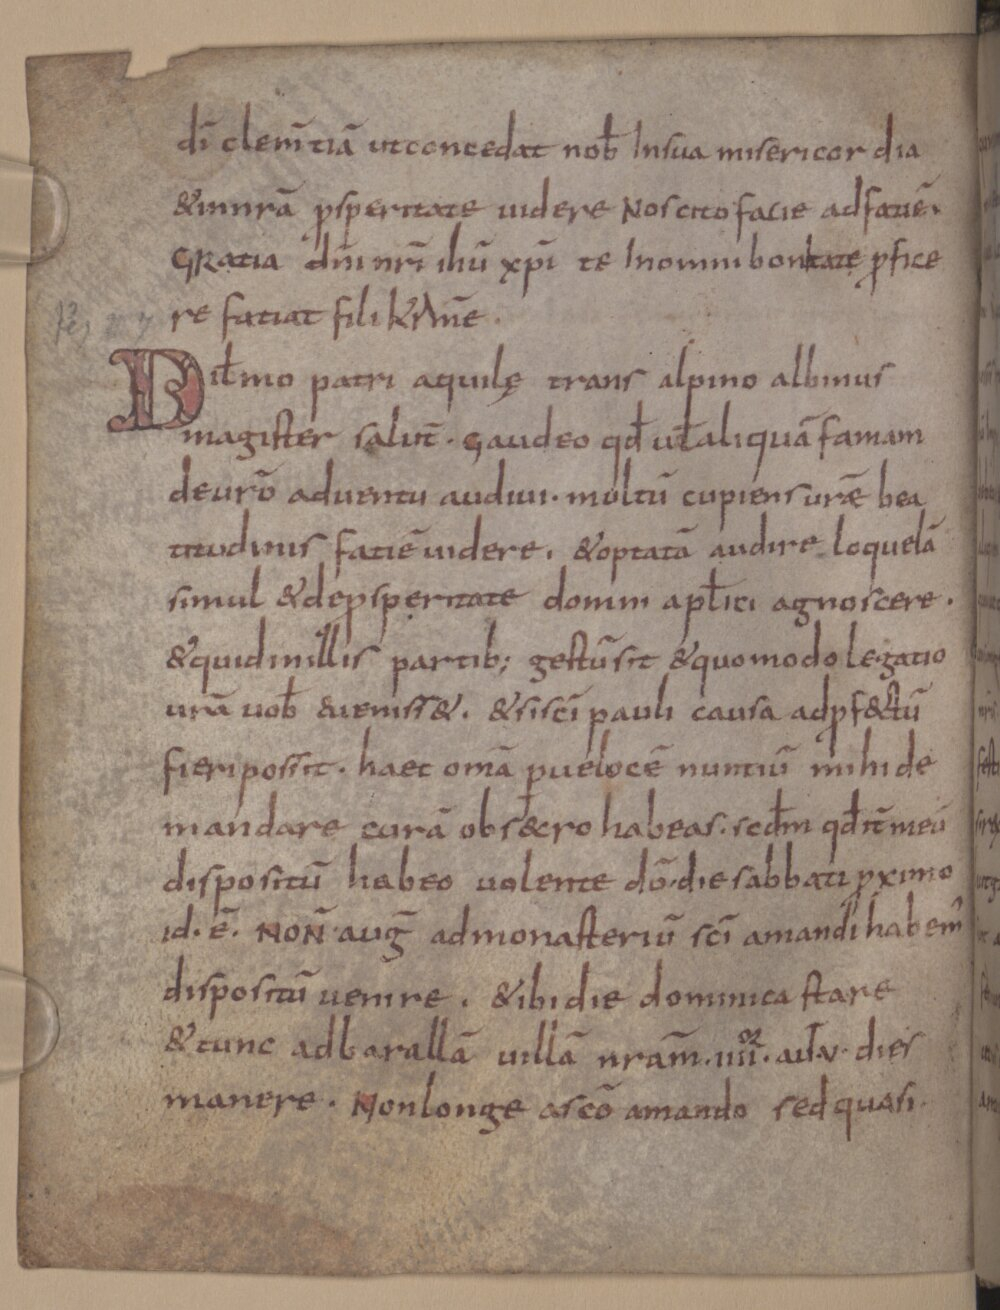 dī clem̄tiā ut concedat nob̄ In sua misericordia
& in nrā ꝓsperitate uidere Nos cito facie ad faciē.
GRatia dn̄i nrī ihū xp̄i te In omni bonitate ꝓfice
re faciat fili k̄rīme.
Dil̄mo patri aquilę trans alpino albinus
magister salut̄. Gaudeo qd̄ ul̄ aliquā famam
de urō aduentu audiui. multū cupiens urę̄ bea
titudinis faciē uidere. & optatā audire loquelā
simul & de ꝓsperitate domni apl̄ici agnoscere.
& quid in illis partib; gestū sit & quomodo legatio
urā uob̄ eueniss&. & si scī pauli causa ad ꝓf&ctū
fieri possit. haec omā p ueločē nuntiū mihi de
mandare curā obsecro habeas. scdm̄ qd̄ it̄ meū
dispositū habeo uolente dō. die sabbati ꝓximo
id. ē. NON̄ auḡ ad monasteriū scī amandi habem̄
dispositū uenire. & ibi die dominica stare
& tunc ad barallā uillā nrām. iiii.or aut. v. dies
manere. Non longe a scō amando sed quasi